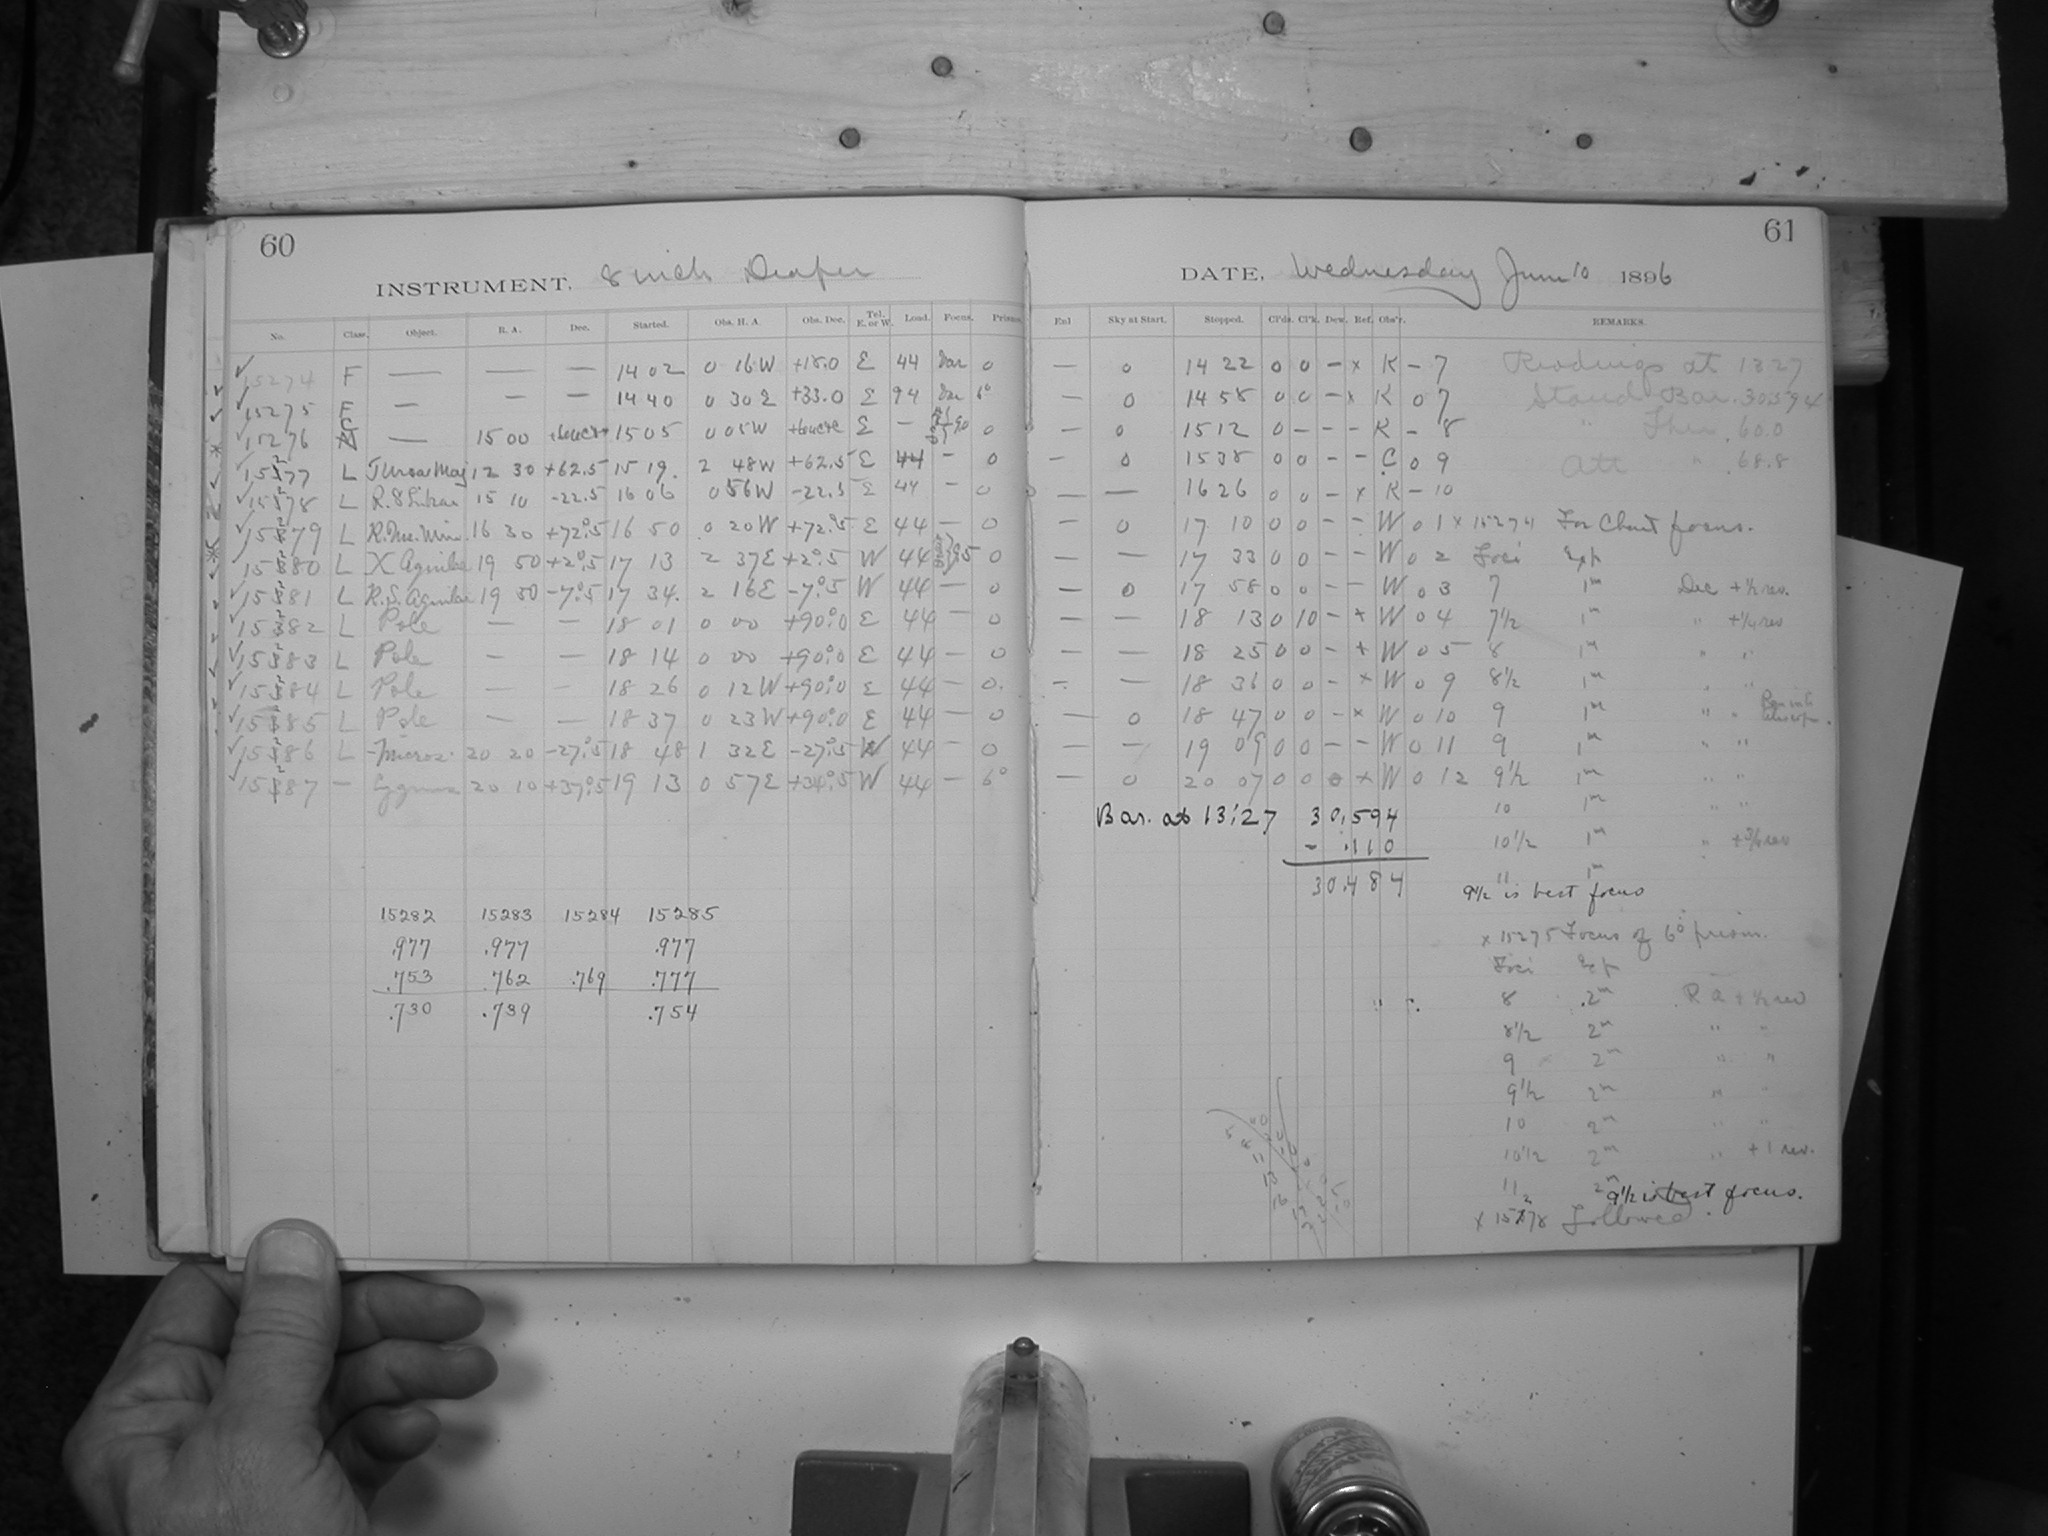 60
INSTRUMENT, 8 inch Draper
No. Class. Object. R. A. Dec. Started. Obs. H. A. Obs. Dec. Tel. E. or W. Lond. Focus. Prisms.
15274 F — — — 14 02 0 16 W +18.0 E 44 Var 0
15275 F — — — 14 40 0 30 E +33.0 E 94 Var 6°
15276 C — 15 00 15 05 0 05 W E — 90 0
15277 L 12 30 +62.5 15 19. 2 48 W +62.5 E 44 — 0
15278 L 15 10 -22.5 16 06 0 56 W -22.5 E 44 — 0
15279 L 16 30 +72°.5 16 50 0 20 W +72°.5 E 44 — 0
15280 L X Aquilae 19 50 +2°.5 17 13 2 37 E +2°.5 W 44 95 0
15281 L R.S. Aquilae 19 50 -7°.5 17 34. 2 16 E -7°.5 W 44 — 0
15282 L Pole — — 18 01 0 00 +90°.0 E 44 — 0
15283 L Pole — — 18 14 0 00 +90°.0 E 44 — 0
15284 L Pole — — 18 26 0 12 W +90°.0 E 44 — 0.
15285 L Pole — — 18 37 0 23 W +90°.0 E 44 — 0
15286 L Micros. 20 20 -27°.5 18 48 1 32 E -27°.5 W 44 — 0
15287 — Cygnus 20 10 +37°.5 19 13 0 57 E +34°.5 W 44 — 6°
15282 15283 15284 15285
.977 .977 .977
.753 .762 .769 .777
.730 .739 .754
61
DATE, Wednesday June 10 1896
Enl Sky at Start. Stopped. Cl'ds. Cl'k. Dew. Ref. Obs'r. REMARKS.
— 0 14 22 0 0 — x K — 7 Readings at 13 27
— 0 14 58 0 0 — x K 0 7 Stand Bar. 30.594
— 0 15 12 0 — — — K — 8 " Ther. 60.0
— 0 15 38 0 0 — — C 0 9 Att " 68.8
— — 16 26 0 0 — x K — 10
— 0 17 10 0 0 — — W 0 1 x 15274 For Chart focus.
— — 17 33 0 0 — — W 0 2 Foci Exp
— 0 17 58 0 0 — — W 0 3 7 1m Dec + ½ rev.
— — 18 13 0 10 — x W 0 4 7½ 1m " + ¼ rev
— — 18 25 0 0 — x W 0 5 8 1m " "
— — 18 36 0 0 — x W 0 9 8½ 1m " "
— 0 18 47 0 0 — x W 0 10 9 1m " "
— — 19 09 0 0 — — W 0 11 9 1m " "
— 0 20 07 0 0 0 x W 0 12 9½ 1m " "
Bar. at 13:27 30.594 10 1m " "
- .110 10½ 1m "
30.484 11 1m
9½ is best focus
x 15275 Focus of 6° prism.
Foci Exp
8 2m R a + ½ rev
8½ 2m " "
9 2m " "
9½ 2m " "
10 2m " "
10½ 2m " + 1 rev.
11 2m 9½ is best focus.
x 15278 Followed.